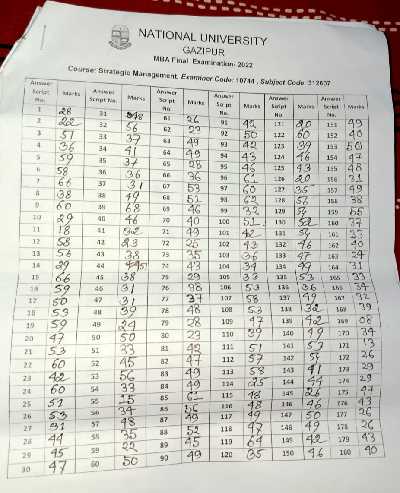 NATIONAL UNIVERSITY
GAZIPUR
MBA Final Examination- 2022
Course: Strategic Management, Examiner Code: 10744 , Subject Code: 312607
Answer Script No. Marks Answer Script No. Marks Answer Script No. Marks Answer Script No. Marks Answer Script No. Marks Answer Script No. Marks
1 28 31 61 26 91 42 121 20 151 49
2 22 32 56 62 23 92 50 122 60 152 40
3 51 33 37 63 49 93 42 123 39 153 50
4 36 34 41 64 49 94 43 124 46 154 47
5 59 35 37 65 28 95 43 125 43 155 48
6 58 36 36 66 36 96 126 20 156 31
7 66 37 31 67 53 97 60 127 35 157 49
8 38 38 49 68 51 98 62 128 158 38
9 60 39 68 69 46 99 32 129 159
10 29 40 46 70 40 100 51 130 52 160 37
11 18 41 32 71 49 101 42 131 161
12 58 42 23 72 25 102 43 132 46 162 20
13 56 43 38 73 35 103 36 133 47 163 24
14 29 44 74 43 104 34 134 49 164 31
15 66 45 38 75 29 105 33 135 53 165 23
16 59 46 31 76 38 106 53 136 36 166 34
17 50 47 31 77 37 107 58 137 49 167 32
18 53 48 39 78 48 108 53 138 32 168 39
19 59 49 24 79 28 109 47 139 42 169 08
20 47 50 50 80 23 110 39 140 49 170 34
21 53 51 33 81 42 111 51 141 57 171 13
22 60 52 45 82 47 112 57 142 172 26
23 42 53 56 83 49 113 58 143 41 173 29
24 60 54 33 84 49 114 25 144 54 174 29
25 51 55 85 115 48 145 26 175 27
26 53 56 34 86 116 48 146 46 176 43
27 31 57 48 87 49 117 49 147 50 177 26
28 44 58 35 88 52 118 47 148 49 178 26
29 45 59 22 89 45 119 64 149 42 179 43
30 47 60 50 90 49 120 35 150 46 180 40